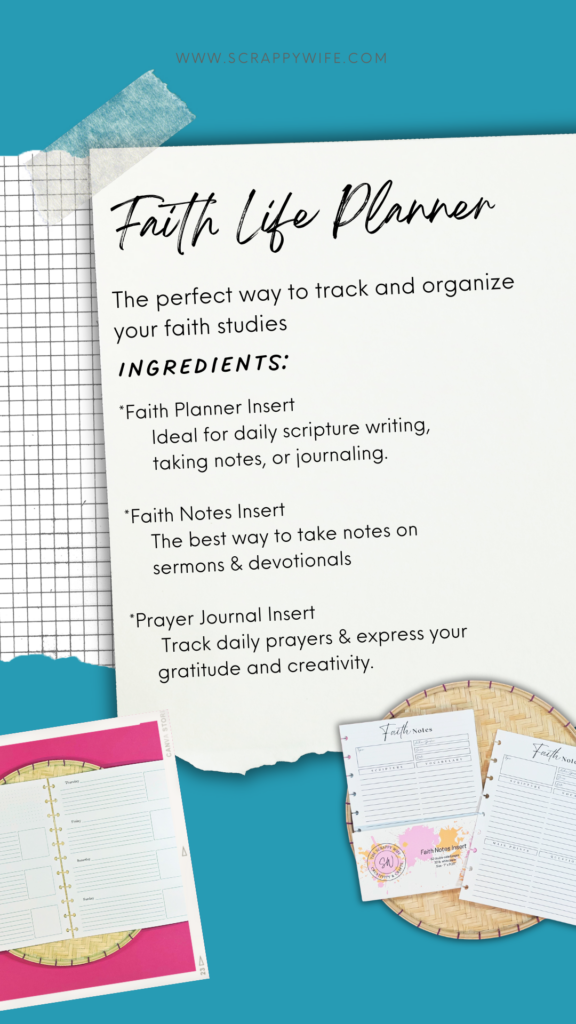 WWW.SCRAPPYWIFE.COM
Faith Life Planner
The perfect way to track and organize
your faith studies
INGREDIENTS:
*Faith Planner Insert
Ideal for daily scripture writing,
taking notes, or journaling.
*Faith Notes Insert
The best way to take notes on
sermons & devotionals
*Prayer Journal Insert
Track daily prayers & express your
gratitude and creativity.
Thursday
Friday
Saturday
Sunday
Faith Notes
SCRIPTURE
Faith Notes Insert
SW
Faith Notes